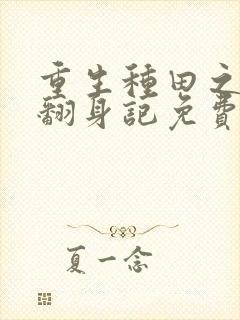 重生種田之
翻身記免費
夏一念